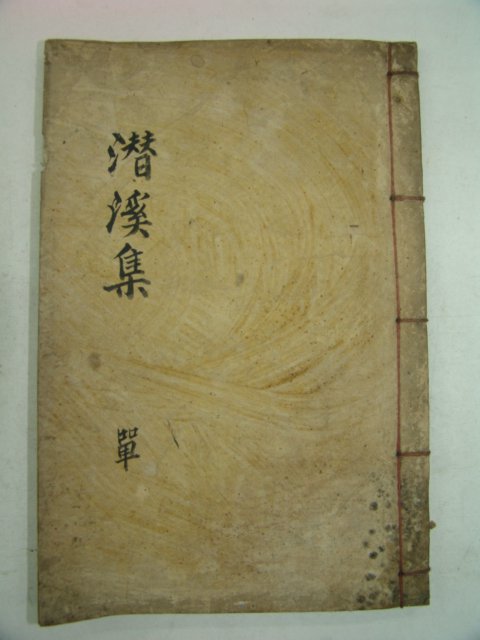 潛溪集
單